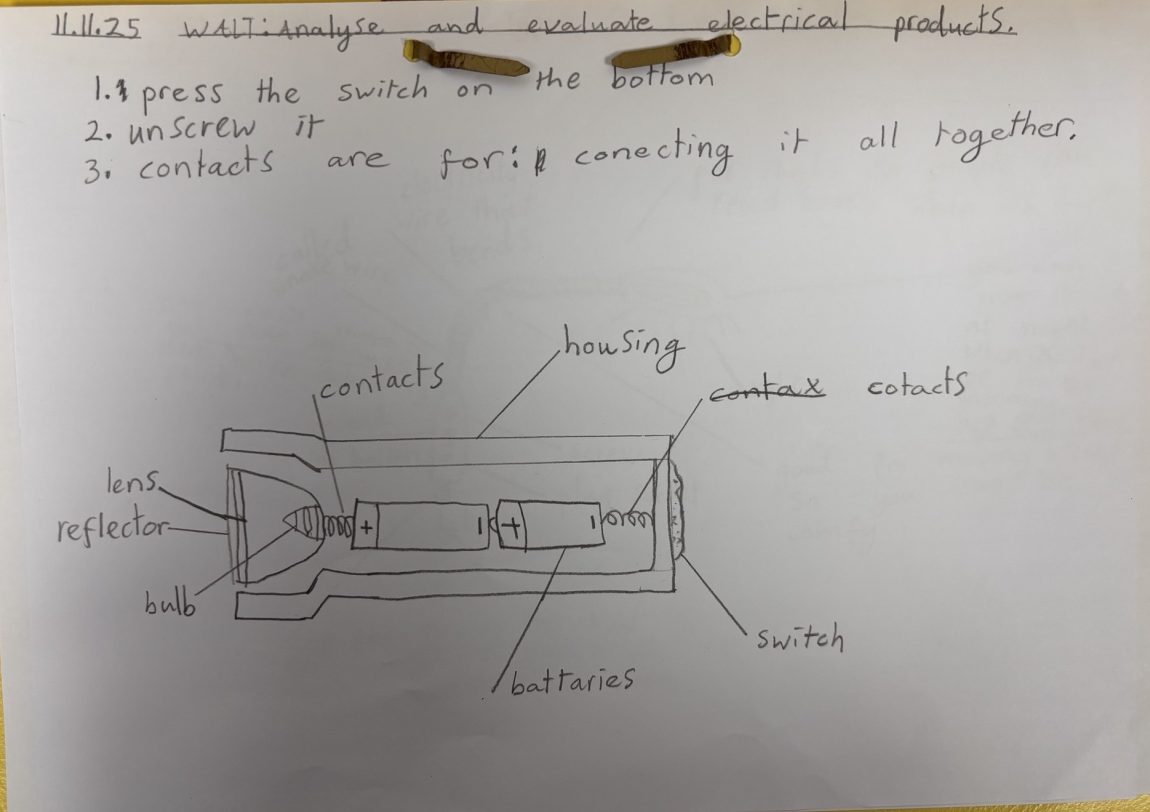 11.11.25 WALT: Analyse and evaluate electrical products.
1. press the switch on the bottom
2. unscrew it
3. contacts are for: conecting it all together.
housing
contacts
contax cotacts
lens
reflector
bulb
switch
battaries